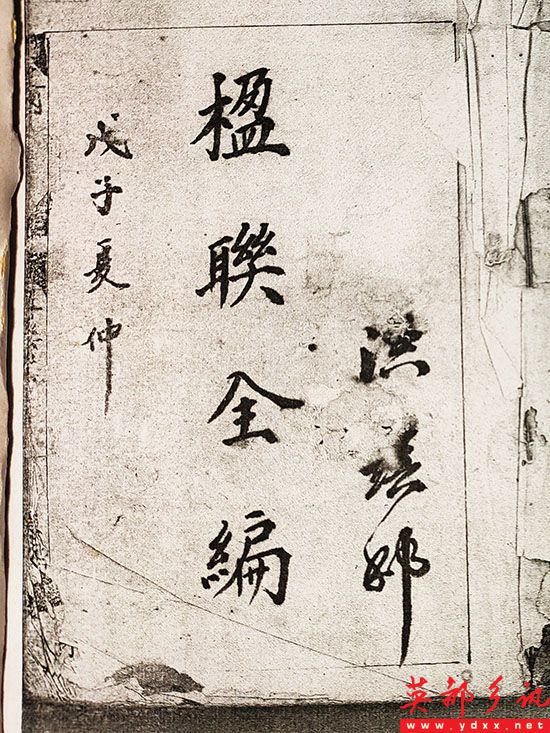 洪
楹聯全編
戊子夏仲
英都乡讯
www.ydxx.net